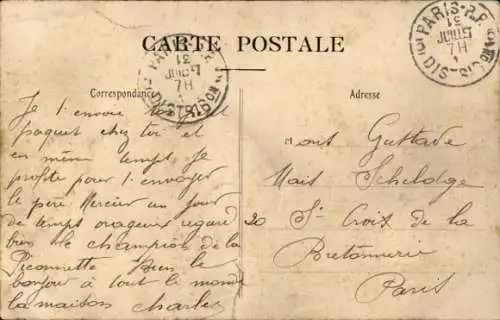 CARTE POSTALE
Correspondance
Adresse
PARIS - R.P.
31
JUILLET
7H
DIS-
PARIS-R.P.
31
JUILLET
7H
DIS-
Je t'envoie ton
paquet chez toi et
en même temps Je
profite pour t'envoyer
le père Mercier un jour
de temps orageux regarde
bien le champion de la
Piconnette Bien le
bonjour à tout le monde
la maison Charles
Mons Gustave
Mais Scheldge
20 St Croix de la
Bretonnerie
Paris